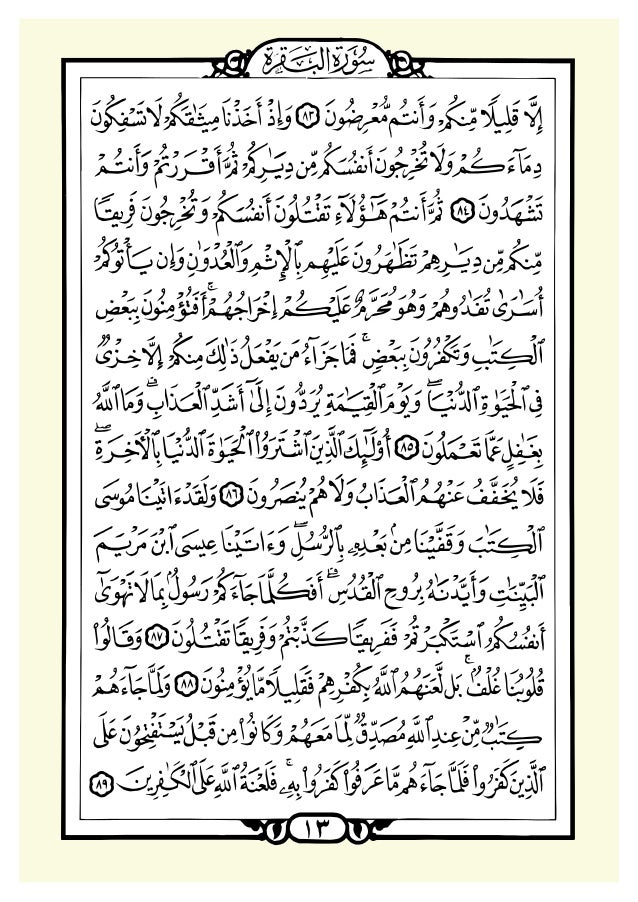 سُورَةُ البَقَرَةِ
إِلَّا قَلِيلًا مِّنكُمْ وَأَنتُم مُّعْرِضُونَ ٨٣ وَإِذْ أَخَذْنَا مِيثَٰقَكُمْ لَا تَسْفِكُونَ
دِمَآءَكُمْ وَلَا تُخْرِجُونَ أَنفُسَكُم مِّن دِيَٰرِكُمْ ثُمَّ أَقْرَرْتُمْ وَأَنتُمْ
تَشْهَدُونَ ٨٤ ثُمَّ أَنتُمْ هَٰٓؤُلَآءِ تَقْتُلُونَ أَنفُسَكُمْ وَتُخْرِجُونَ فَرِيقًا
مِّنكُم مِّن دِيَٰرِهِمْ تَظَٰهَرُونَ عَلَيْهِم بِٱلْإِثْمِ وَٱلْعُدْوَٰنِ وَإِن يَأْتُوكُمْ
أُسَٰرَىٰ تُفَٰدُوهُمْ وَهُوَ مُحَرَّمٌ عَلَيْكُمْ إِخْرَاجُهُمْ ۚ أَفَتُؤْمِنُونَ بِبَعْضِ
ٱلْكِتَٰبِ وَتَكْفُرُونَ بِبَعْضٍ ۚ فَمَا جَزَآءُ مَن يَفْعَلُ ذَٰلِكَ مِنكُمْ إِلَّا خِزْىٌ
فِى ٱلْحَيَوٰةِ ٱلدُّنْيَا ۖ وَيَوْمَ ٱلْقِيَٰمَةِ يُرَدُّونَ إِلَىٰٓ أَشَدِّ ٱلْعَذَابِ ۗ وَمَا ٱللَّهُ
بِغَٰفِلٍ عَمَّا تَعْمَلُونَ ٨٥ أُو۟لَٰٓئِكَ ٱلَّذِينَ ٱشْتَرَوُا۟ ٱلْحَيَوٰةَ ٱلدُّنْيَا بِٱلْءَاخِرَةِ ۖ
فَلَا يُخَفَّفُ عَنْهُمُ ٱلْعَذَابُ وَلَا هُمْ يُنصَرُونَ ٨٦ وَلَقَدْ ءَاتَيْنَا مُوسَى
ٱلْكِتَٰبَ وَقَفَّيْنَا مِنۢ بَعْدِهِۦ بِٱلرُّسُلِ ۖ وَءَاتَيْنَا عِيسَى ٱبْنَ مَرْيَمَ
ٱلْبَيِّنَٰتِ وَأَيَّدْنَٰهُ بِرُوحِ ٱلْقُدُسِ ۗ أَفَكُلَّمَا جَآءَكُمْ رَسُولٌۢ بِمَا لَا تَهْوَىٰٓ
أَنفُسُكُمُ ٱسْتَكْبَرْتُمْ فَفَرِيقًا كَذَّبْتُمْ وَفَرِيقًا تَقْتُلُونَ ٨٧ وَقَالُوا۟
قُلُوبُنَا غُلْفٌۢ ۚ بَل لَّعَنَهُمُ ٱللَّهُ بِكُفْرِهِمْ فَقَلِيلًا مَّا يُؤْمِنُونَ ٨٨ وَلَمَّا جَآءَهُمْ
كِتَٰبٌ مِّنْ عِندِ ٱللَّهِ مُصَدِّقٌ لِّمَا مَعَهُمْ وَكَانُوا۟ مِن قَبْلُ يَسْتَفْتِحُونَ عَلَى
ٱلَّذِينَ كَفَرُوا۟ فَلَمَّا جَآءَهُم مَّا عَرَفُوا۟ كَفَرُوا۟ بِهِۦ ۚ فَلَعْنَةُ ٱللَّهِ عَلَى ٱلْكَٰفِرِينَ ٨٩
١٣